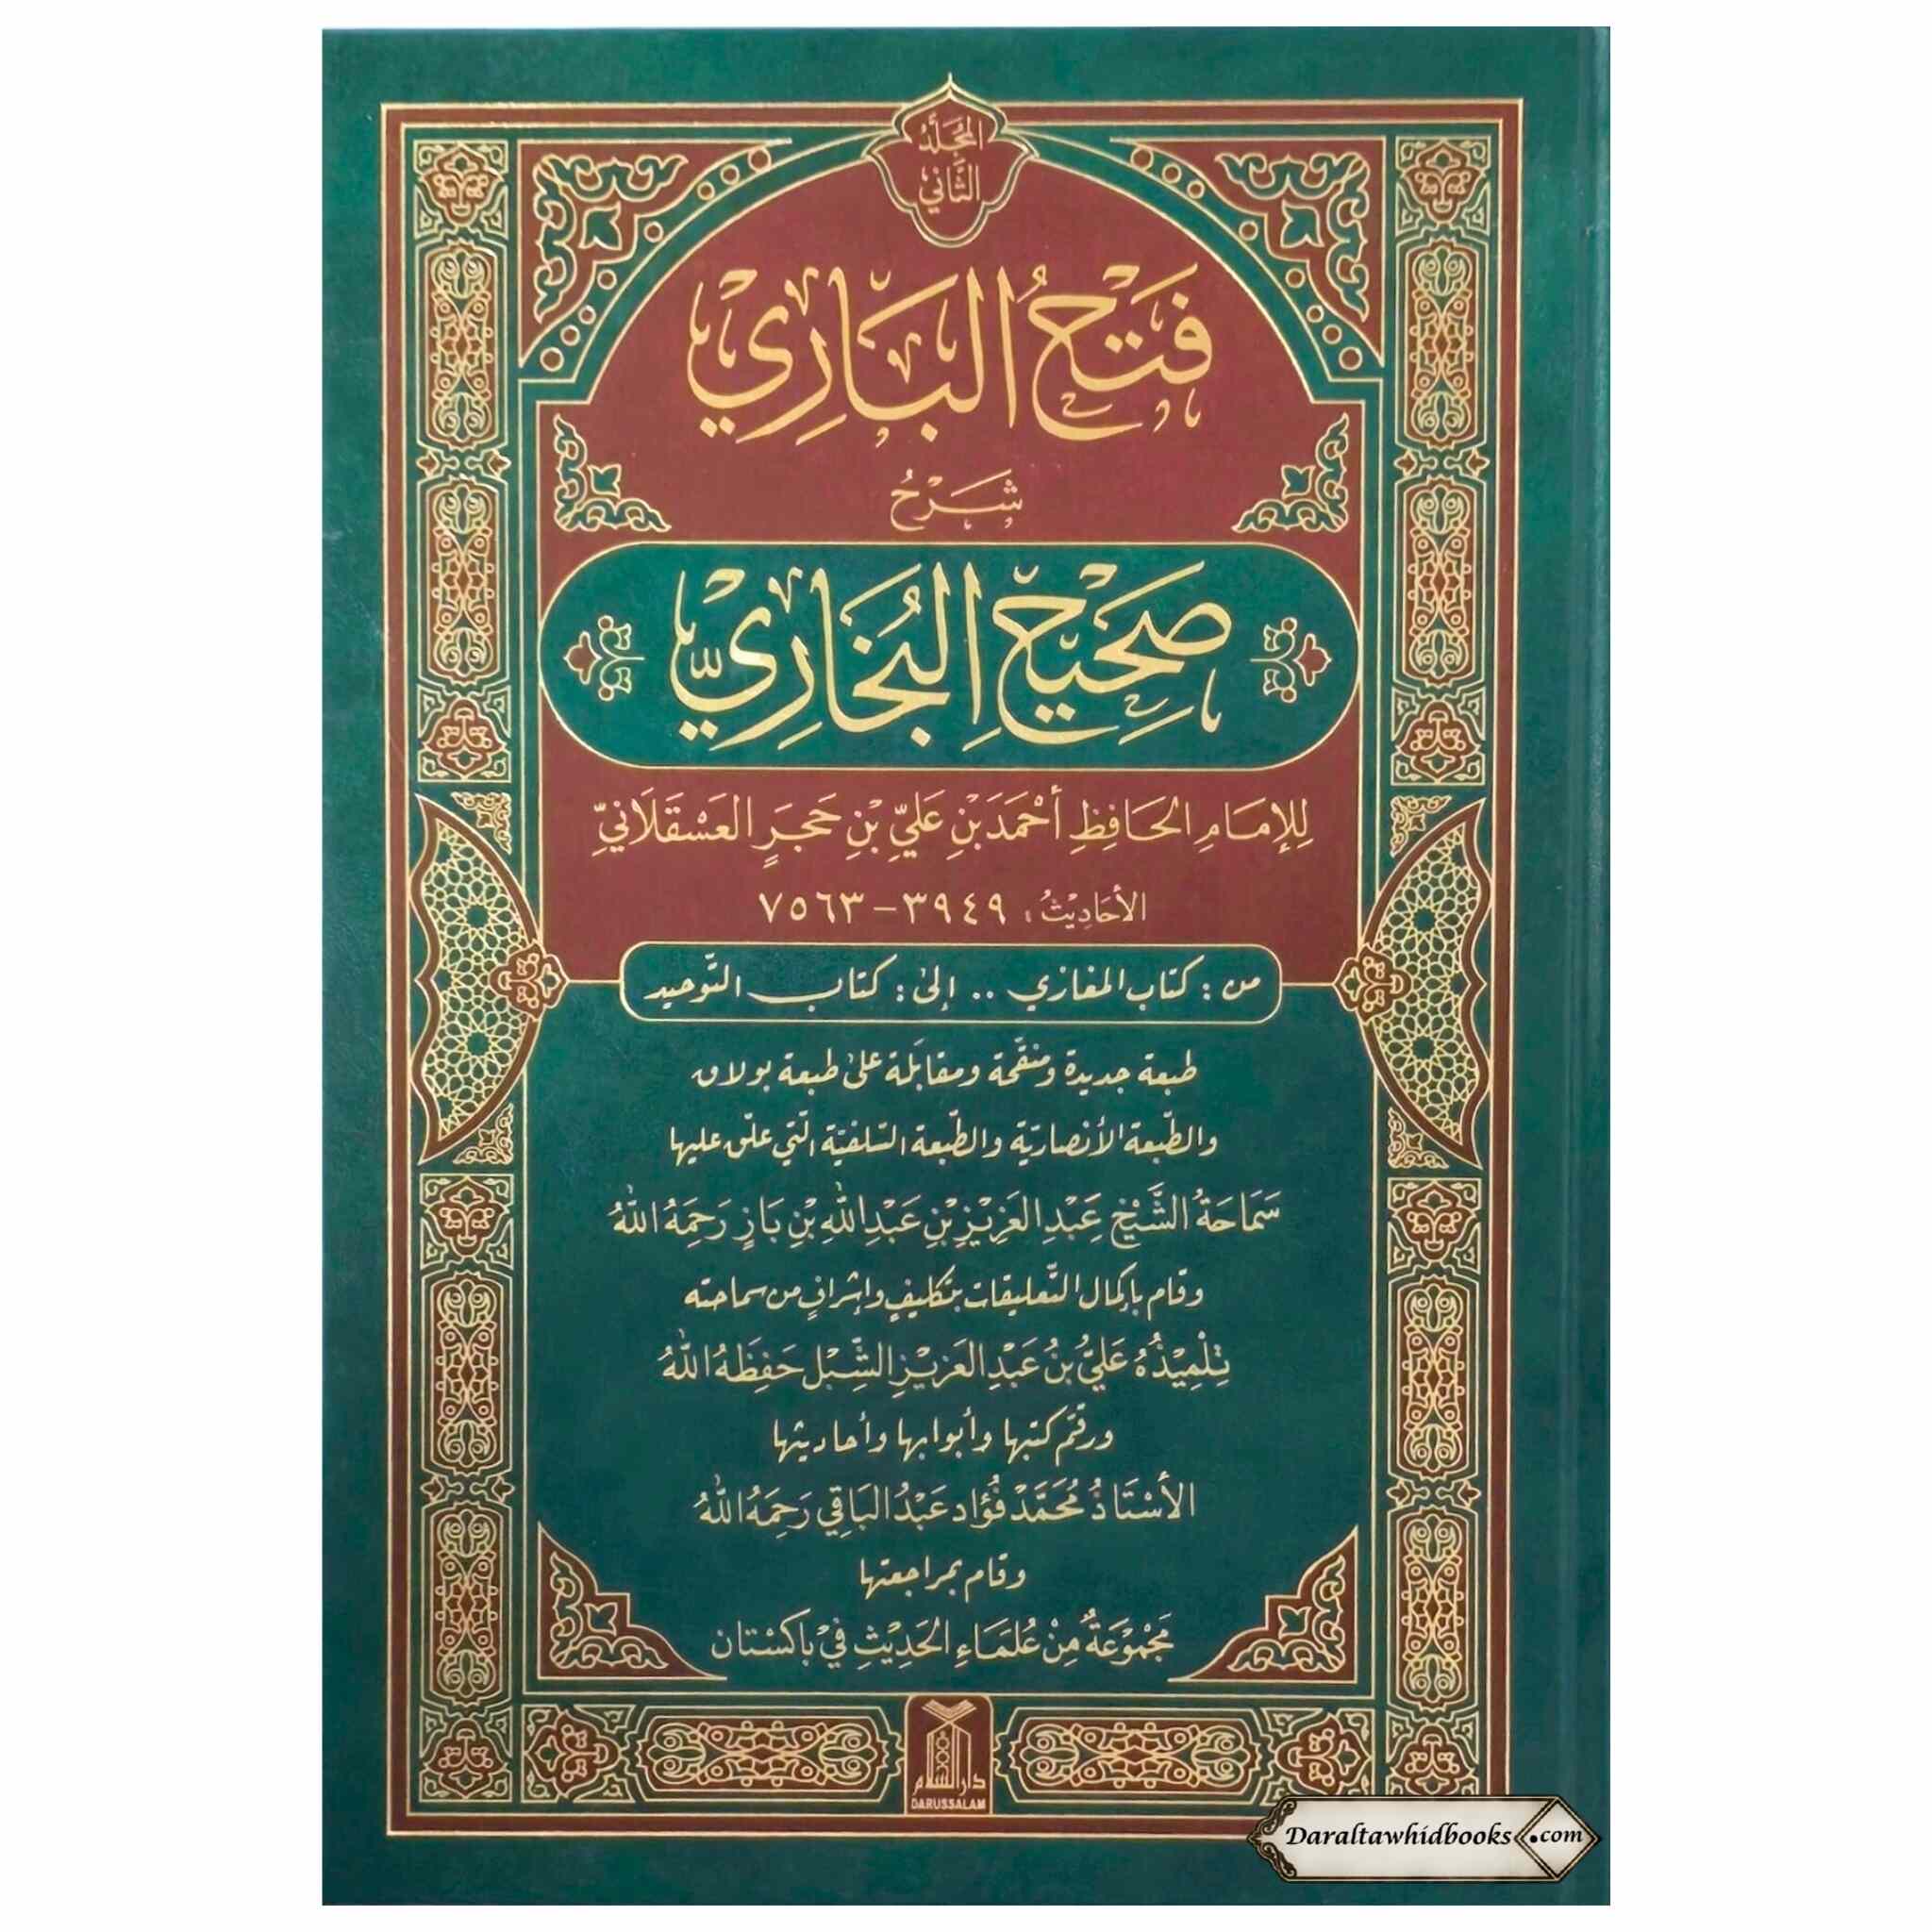 المُجَلَّدُ
الثَّانِي
فَتْحُ البَارِي
شَرْحُ
صَحِيحِ البُخَارِيِّ
لِلإِمَامِ الحَافِظِ أَحْمَدَ بْنِ عَلِيِّ بْنِ حَجَرٍ العَسْقَلَانِيِّ
الأَحَادِيْثُ: ٣٩٤٩ - ٧٥٦٣
من: كتاب المغازي .. إلى: كتاب التّوحيد
طبعة جديدة ومنقّحة ومقابَلة على طبعة بولاق
والطّبعة الأنصاريّة والطّبعة السّلفيّة الّتي علّق عليها
سَمَاحَةُ الشَّيْخِ عَبْدِ العَزِيْزِ بْنِ عَبْدِ اللهِ بْنِ بَازٍ رَحِمَهُ اللهُ
وقام بإكمال التّعليقات بتكليفٍ وإشرافٍ من سماحته
تِلْمِيْذُهُ عَلِيُّ بْنُ عَبْدِ العَزِيْزِ الشِّبْل حَفِظَهُ اللهُ
ورقّم كتبها وأبوابها وأحاديثها
الأُسْتَاذُ مُحَمَّدْ فُؤَاد عَبْدُ البَاقِي رَحِمَهُ اللهُ
وقام بمراجعتها
مَجْمُوْعَةٌ مِنْ عُلَمَاءِ الحَدِيْثِ فِيْ بَاكسْتَان
دار السلام
DARUSSALAM
Daraltawhidbooks.com